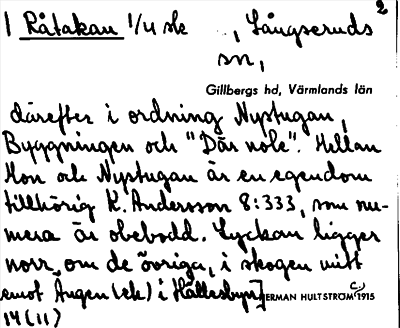 2
1 Råtakan 1/4 sk , Långseruds
sn,
Gillbergs hd, Värmlands län
därefter i ordning Nystugan,
Byggningen och "Där nole". Mellan
Mon och Nystugan är en egendom
tillhörig K. Andersson 8:333, som nu-
mera är obebodd. Lyckan ligger
norr om de övriga, i skogen mitt
emot Ängen (ek) i Hällesbyn]
HERMAN HULTSTRÖM 1915
14 (11)